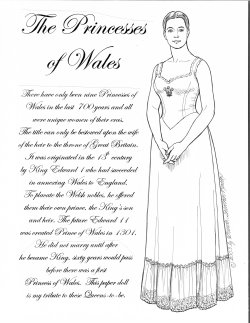 The Princesses
of Wales
There have only been nine Princesses of
Wales in the last 700 years and all
were unique women of their eras.
The title can only be bestowed upon the wife
of the heir to the throne of Great Britain.
It was originated in the 13th century
by King Edward 1 who had succeeded
in annexing Wales to England.
To placate the Welsh nobles, he offered
them their own prince, the King's son
and heir. The future Edward 11
was created Prince of Wales in 1301.
He did not marry until after
he became King, sixty years would pass
before there was a first
Princess of Wales. This paper doll
is my tribute to these Queens-to-be.